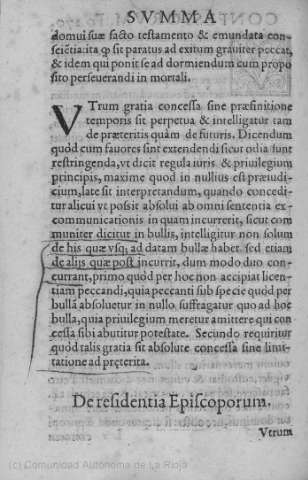 SVMMA
domui suæ facto testamento & emundata con-
sciẽtia:ita ꝙ sit paratus ad exitum grauiter peccat,
& idem qui ponit se ad dormiendum cum propo
sito perseuerandi in mortali.
VTrum gratia concessa sine præfinitione
temporis sit perpetua & intelligatur tam
de præteritis quàm de futuris. Dicendum
quòd cum fauores sint extendendi sicut odia sunt
restringenda, vt dicit regula iuris & priuilegium
principis, maxime quod in nullius est præiudi-
cium, late sit interpretandum, quando concedi-
tur alicui vt possit absolui ab omni sententia ex-
communicationis in quam incurrerit, sicut com
muniter dicitur in bullis, intelligitur non solum
de his quæ vsq; ad datam bullæ habet sed etiam
de alijs quæ post incurrit, dum modo duo con-
currant, primo quòd per hoc non accipiat licen-
tiam peccandi, quia peccanti sub specie quòd per
bullã absoluetur in nullo suffragatur quo ad hoc
bulla, quia priuilegium meretur amittere qui con
cessa sibi abutitur potestate. Secundo requiritur
quòd talis gratia sit absolute concessa sine limi-
tatione ad præterita.
De residentia Episcoporum.
Vtrum
(c) Comunidad Autónoma de La Rioja